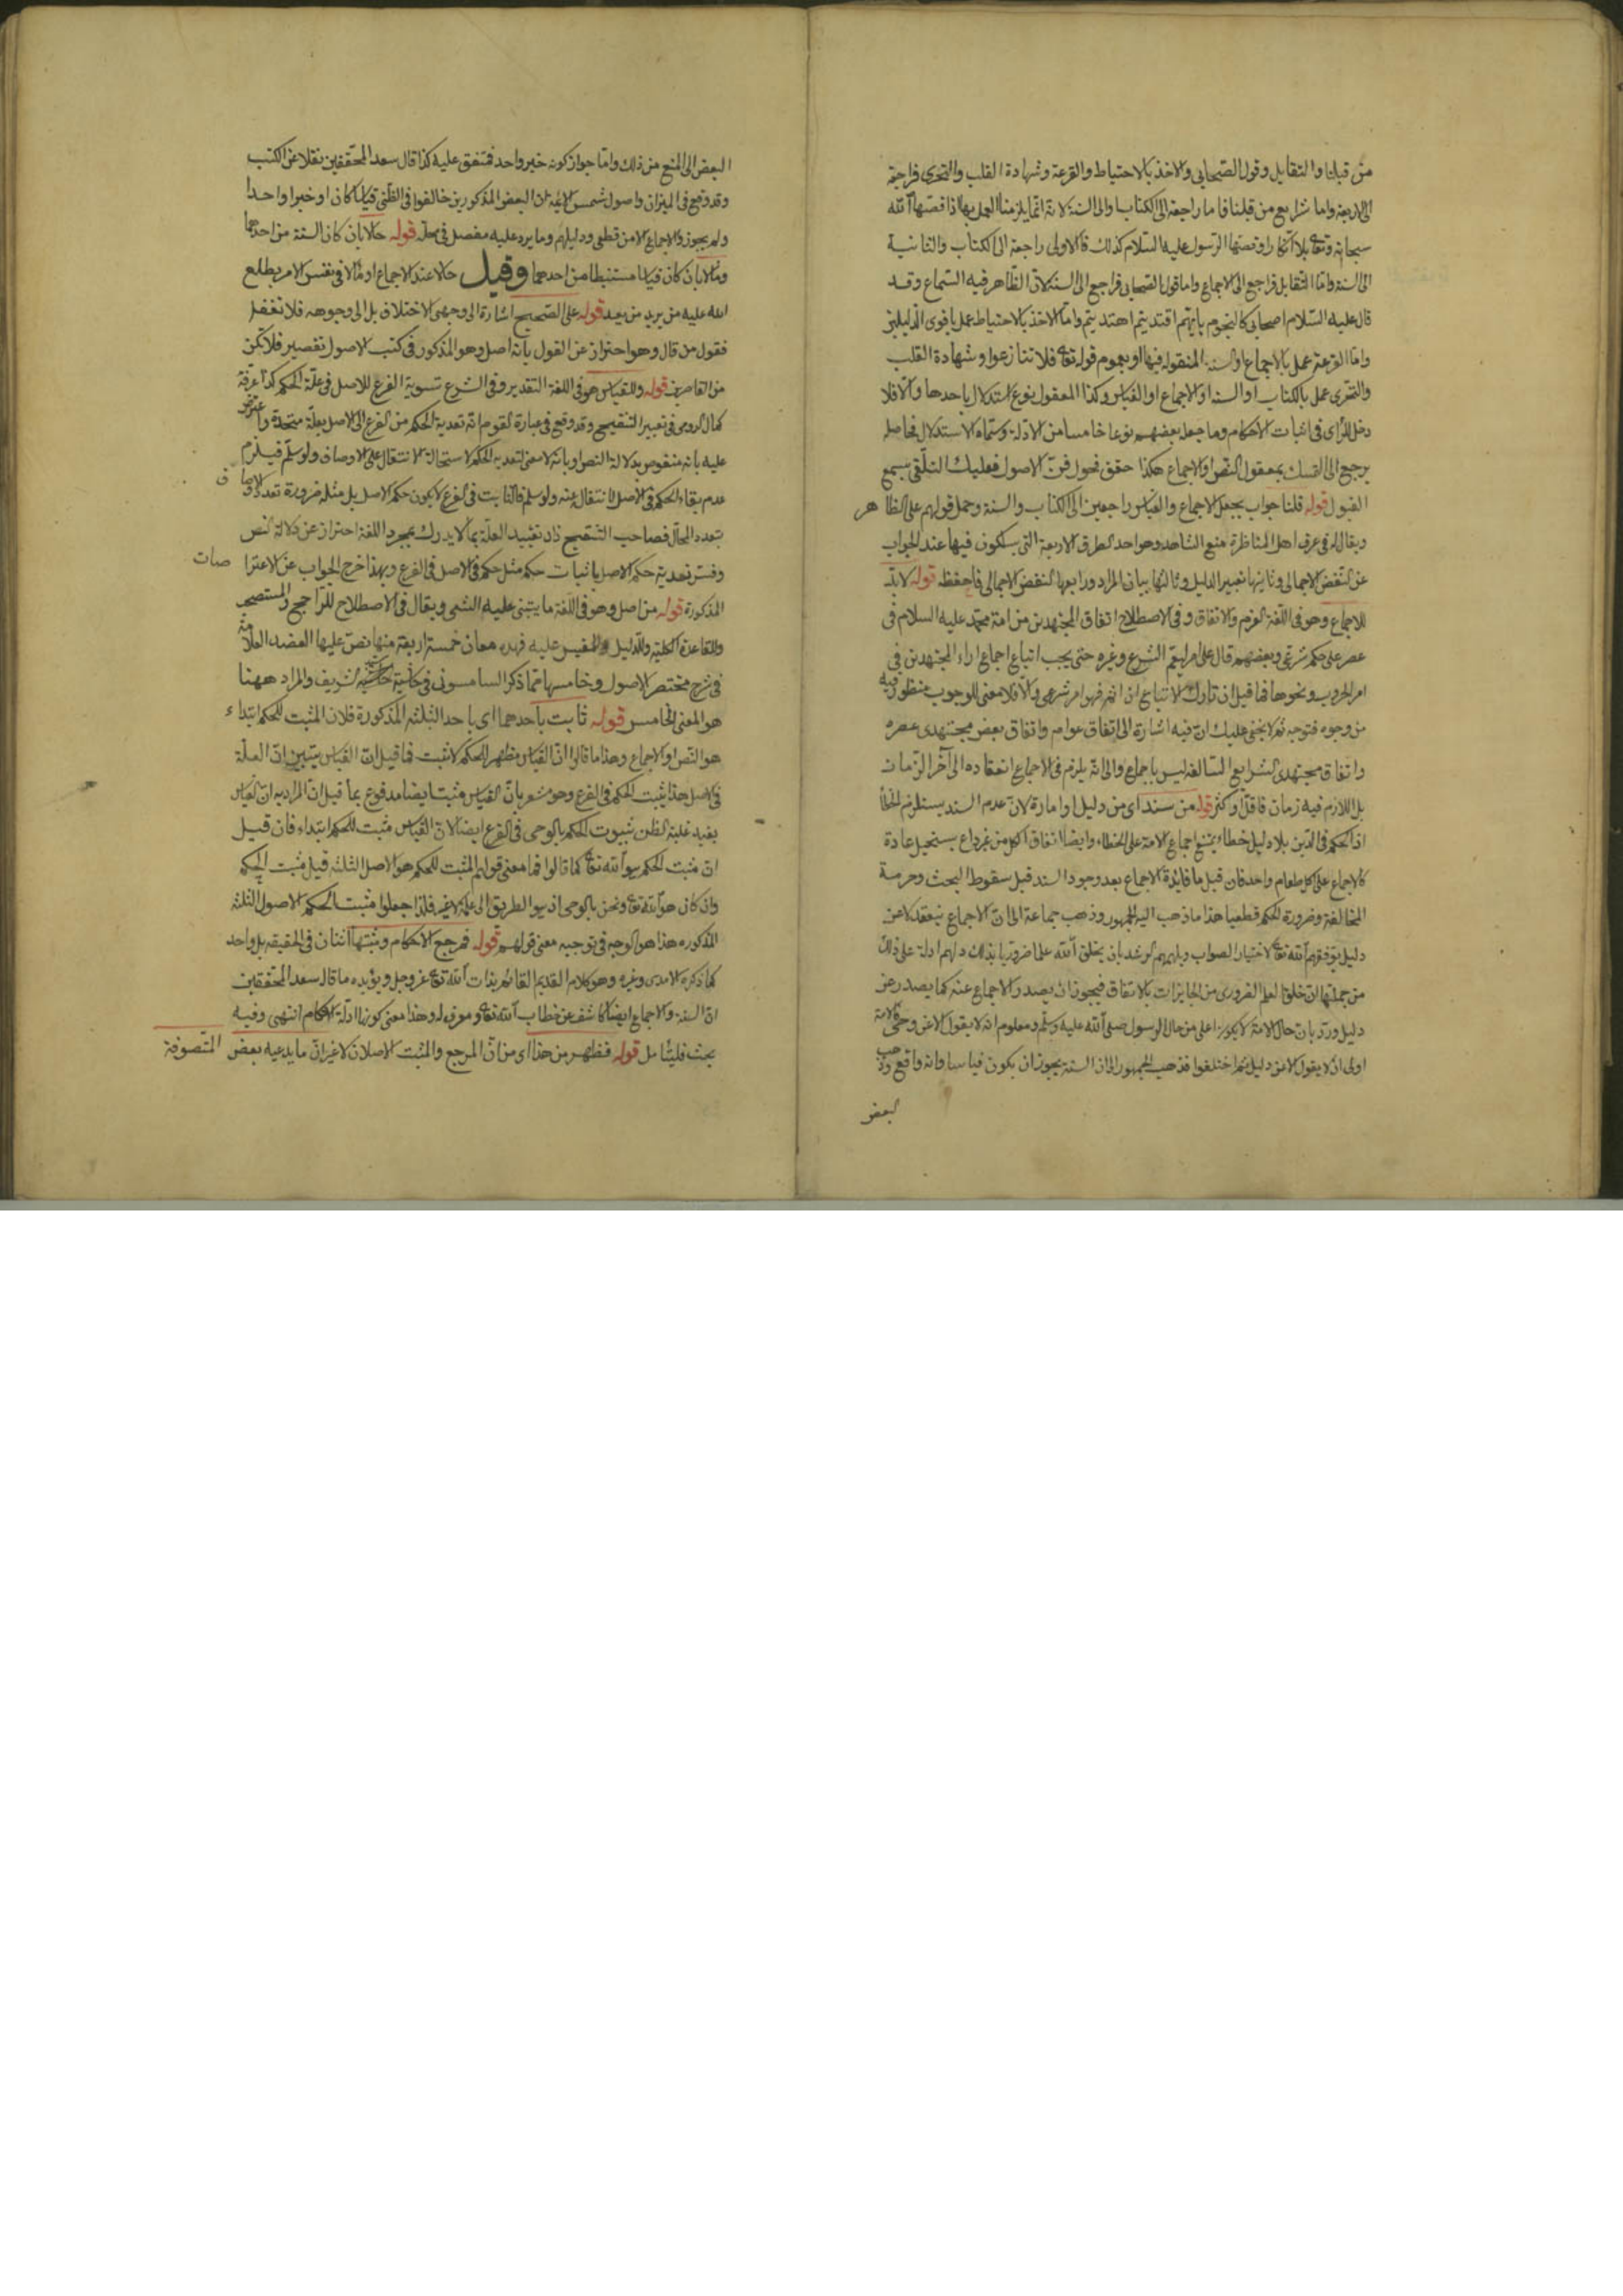 من قبلنا والتقابل وقول الصحابى والاخذ بالاحتياط والقرعة وشهادة القلب والتحرى فراجعة
الى الاربعة واما شرايع من قبلنا فاما راجعة الى الكتاب او الى السنة لانه انما يلزمنا العمل بها اذا قصها الله
سبحانه وتعالى بلا انكار او قصها الرسول عليه السلام كذلك فالاولى راجعة الى الكتاب والثانية
الى السنة واما التقابل فراجع الى الاجماع واما قول الصحابى فراجع الى السنة لان الظاهر فيه السماع وقد
قال عليه السلام اصحابى كالنجوم بايهم اقتديتم اهتديتم واما الاخذ بالاحتياط عمل باقوى الدليلين
واما القرعة عمل بالاجماع او السنة المنقولة فيها او بعموم قوله تعالى فلا تنازعوا وشهادة القلب
والتحرى عمل بالكتاب او السنة او الاجماع او القياس وكذا المعقول نوع استدلال باحدها والا فلا
دخل للراى فى اثبات الاحكام وما جعله بعضهم نوعا خامسا من الادلة وسماه الاستدلال فحاصله
يرجع الى التمسك بمعقول النص او الاجماع هكذا حقق فحول فن الاصول فعليك التلقى بسمع
القبول قوله قلنا جواب بجعل الاجماع والقياس راجعين الى الكتاب والسنة وحمل قولهم على الظاهر
ويقال له فى عرف اهل المناظرة منع الشاهد وهو احد الطرق الاربعة التى يسلكون فيها عند الجواب
عن النقض الاجمالى وثانيها تغيير الدليل وثالثها بيان المراد ورابعها النقض الاجمالى فاحفظه قوله لابد
للاجماع وهو فى اللغة العزم والاتفاق وفى الاصطلاح اتفاق المجتهدين من امة محمد عليه السلام فى
عصر على حكم شرعى وبعضهم قال على امر ليعم الشرع وغيره حتى يجب اتباع اجماع اراء المجتهدين فى
امر الحروب ونحوها فما قيل ان تارك الاتباع ان اثم فهو امر شرعى والا فلا معنى للوجوب منظور فيه
من وجوه فتوجه ثم لا يخفى عليك ان فيه اشارة الى اتفاق عوام واتفاق بعض مجتهدى عصره
واتفاق مجتهدى الشرايع السالفة ليس باجماع والى انه يلزم فى الاجماع انعقاده الى آخر الزمان
بل اللازم فيه زمان ما قل او كثر قوله من سند اى من دليل او امارة لان عدم السند يستلزم الخطأ
اذ الحكم فى الدين بلا دليل خطاء ويمتنع اجماع الامة على الخطاء وايضا اتفاق الكل من غير داع يستحيل عادة
كالاجماع على اكل طعام واحد فان قيل ما فائدة الاجماع بعد وجود السند قيل سقوط البحث وحرمة
المخالفة وضرورة الحكم قطعيا هذا ما ذهب اليه الجمهور وذهب جماعة الى ان الاجماع ينعقد لا عن
دليل بتوفيقهم الله تعالى لاختيار الصواب ويلهمهم الرشد بان يخلق الله علما ضروريا بذلك ولهم ادلة على ذلك
من جملتها ان خلق العلم الضرورى من الجايزات بالاتفاق فيجوز ان يصدر الاجماع عنه كما يصدر عن
دليل ورد بان حال الامة لا يكون اعلى من حال الرسول صلى الله عليه وسلم ومعلوم انه لا يقول الا عن وحى فالامة
اولى ان لا يقول الا عن دليل ثم اختلفوا فذهب الجمهور الى ان السند يجوز ان يكون قياسا وانه واقع وذهب
البعض
البعض الى المنع من ذلك واما جواز كونه خبر واحد فمتفق عليه كذا قال سعد المحققين نقلا عن الكتب
وقد وقع فى الميزان واصول شمس الائمة ان البعض المذكورين خالفوا فى الظنى قياسا كان او خبرا واحدا
ولم يجوزوا الاجماع الا من قطعى ودليلهم وما يرد عليه مفصل فى محله قوله حالا بان كان السنة من احدهما
ومآلا بان كان قياسا مستنبطا من احدهما وقيل حالا عند الاجماع او مآلا فى نفس الامر يطلع
الله عليه من يريد من بعيد قوله على الصحيح اشارة الى وجهى الاختلاف بل الى وجوهه فلا تغفل
فقول من قال وهو احتراز عن القول بانه اصل وهو المذكور فى كتب الاصول تقصير فلا تكن
من القاصرين قوله وللقياس هو فى اللغة التقدير وفى الشرع تسوية الفرع للاصل فى علة الحكم كذا عرفه
كمال الرومى فى تغيير التنقيح وقد وقع فى عبارة القوم انه تعدية الحكم من الفرع الى الاصل بعلة متحدة واعترض
عليه بانه منقوص بدلالة النص او بانه لا معنى لتعدية الحكم لاستحالة الانتقال على الاوصاف ولو سلم فيلزم
عدم بقاء الحكم فى الاصل لانتقال عنه ولو سلم فالثابت فى الفرع لا يكون حكم الاصل بل مثله ضرورة تعدد الاوصاف
بتعدد المحال فصاحب التنقيح زاد تقييد العلة بما لا يدرك بمجرد اللغة احتراز عن دلالة النص
وفسر تعدية حكم الاصل باثبات حكم مثل حكم فى الاصل فى الفرع وبهذا خرج الجواب عن الاعتراضات
المذكورة قوله من اصل وهو فى اللغة ما يبتنى عليه الشئ ويقال فى الاصطلاح للراجح والمستصحب
وللقاعدة الكلية وللدليل وللمقيس عليه فهذه معان خمسة اربعة منها نص عليها العضد العلامة
فى شرح مختصر الاصول وخامسها مما ذكر السامسونى فى حاشية حاشيته الشريف والمراد ههنا
هو المعنى الخامس قوله ثابت باحدهما اى باحد الثلثة المذكورة فلان المثبت للحكم ابتداء
هو النص او الاجماع وهذا ما قالوا ان القياس مظهر للحكم لا مثبت فما قيل ان القياس يتبين ان العلة
فى الاصل هذا يثبت الحكم فى الفرع وهو مشعر بان القياس مثبت ايضا مدفوع بما قيل ان المراد به ان القياس
يفيد غلبة الظن بثبوت الحكم بالوحى فى الفرع ايضا لا ان القياس مثبت للحكم ابتداء فان قيل
ان مثبت الحكم هو الله تعالى كما قالوا فما معنى قولهم المثبت للحكم هو الاصل الثلثة قيل مثبت الحكم
وان كان هو الله تعالى ونحن بالوحى اذ هو الطريق الى علمه لا غير فلذا جعلوا مثبت الحكم الاصول الثلثة
المذكورة هذا هو الوجه فى توجيه معنى قولهم قوله فمرجع الاحكام ومثبتها اثنان فى الحقيقة بل واحد
كما ذكره الآمدى وغيره وهو كلام القديم القائم بذات الله تعالى عز وجل ويؤيده ما قال سعد المحققين
ان السنة والاجماع ايضا كاشف عن خطاب الله تعالى ومعرف له وهذا معنى كونها ادلة الاحكام انتهى وفيه
بحث فليتأمل قوله فظهر من هذا اى من ان المرجع والمثبت الاصلان لا غير ان ما يدعيه بعض المتصوفة